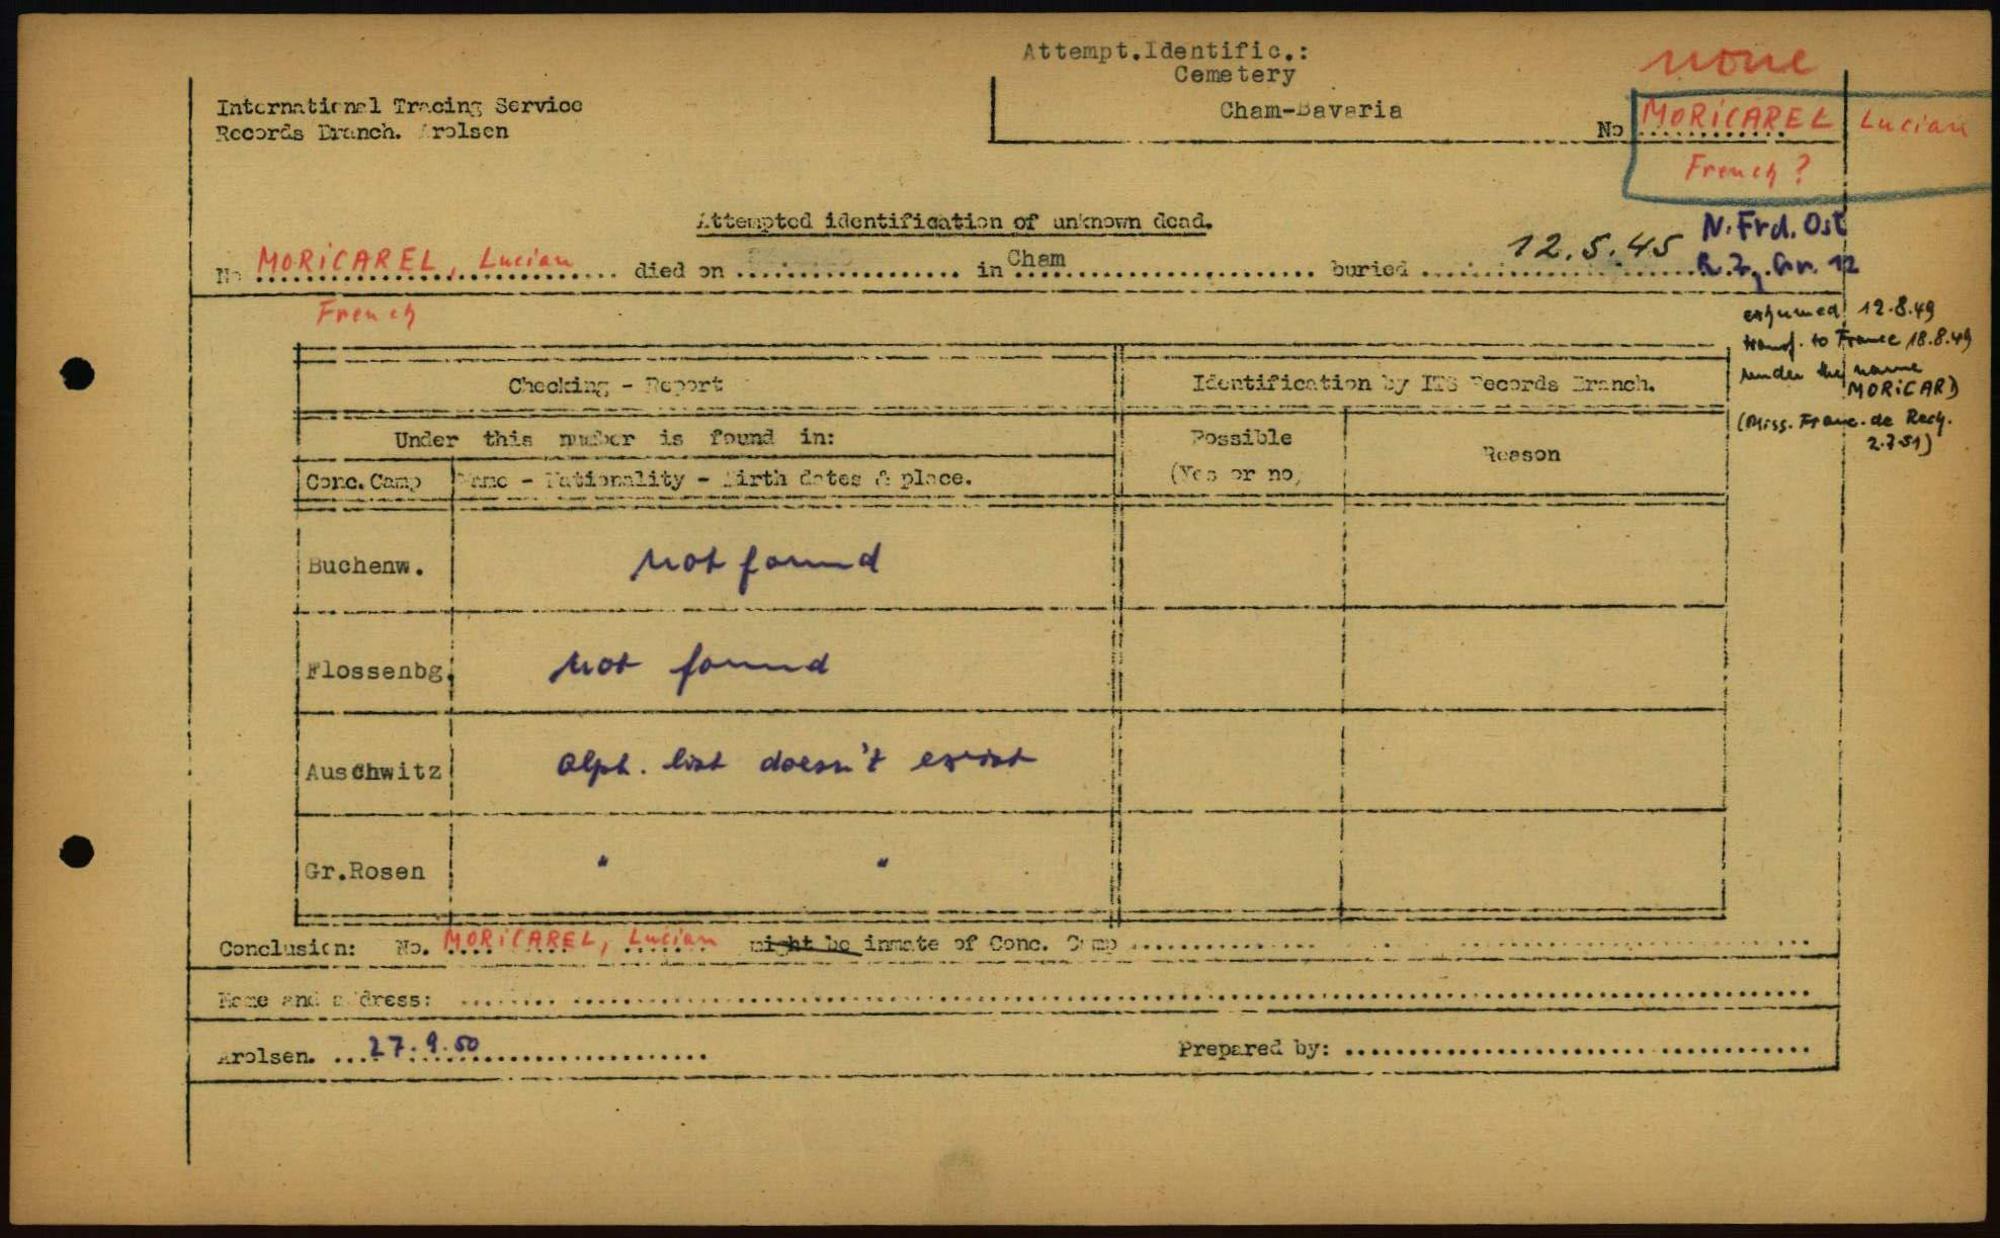 Attempt.Identific.:
Cemetery
Cham-Bavaria
none
International Tracing Service
Records Branch. Arolsen
No MORiCAREL Lucian
French?
Attempted identification of unknown dead.
N. Frd. Ost
R. 2, Gr. 12
No MORiCAREL, Lucian died on in Cham buried 12.5.45
French
exhumed 12.8.49
transf. to France 18.8.49
under the name
MORiCARD
(Miss. Franc. de Rech.
2.7.51)
Checking - Report
Identification by ITS Records Branch.
Under this number is found in:
Possible
(Yes or no)
Reason
Conc. Camp Name - Nationality - Birth dates & place.
Buchenw. not found
Flossenbg. not found
Auschwitz Alph. list doesn't exist
Gr.Rosen " "
Conclusion: No. MORiCAREL, Lucian might be inmate of Conc. Camp
Name and address:
Arolsen. 27.9.50
Prepared by: